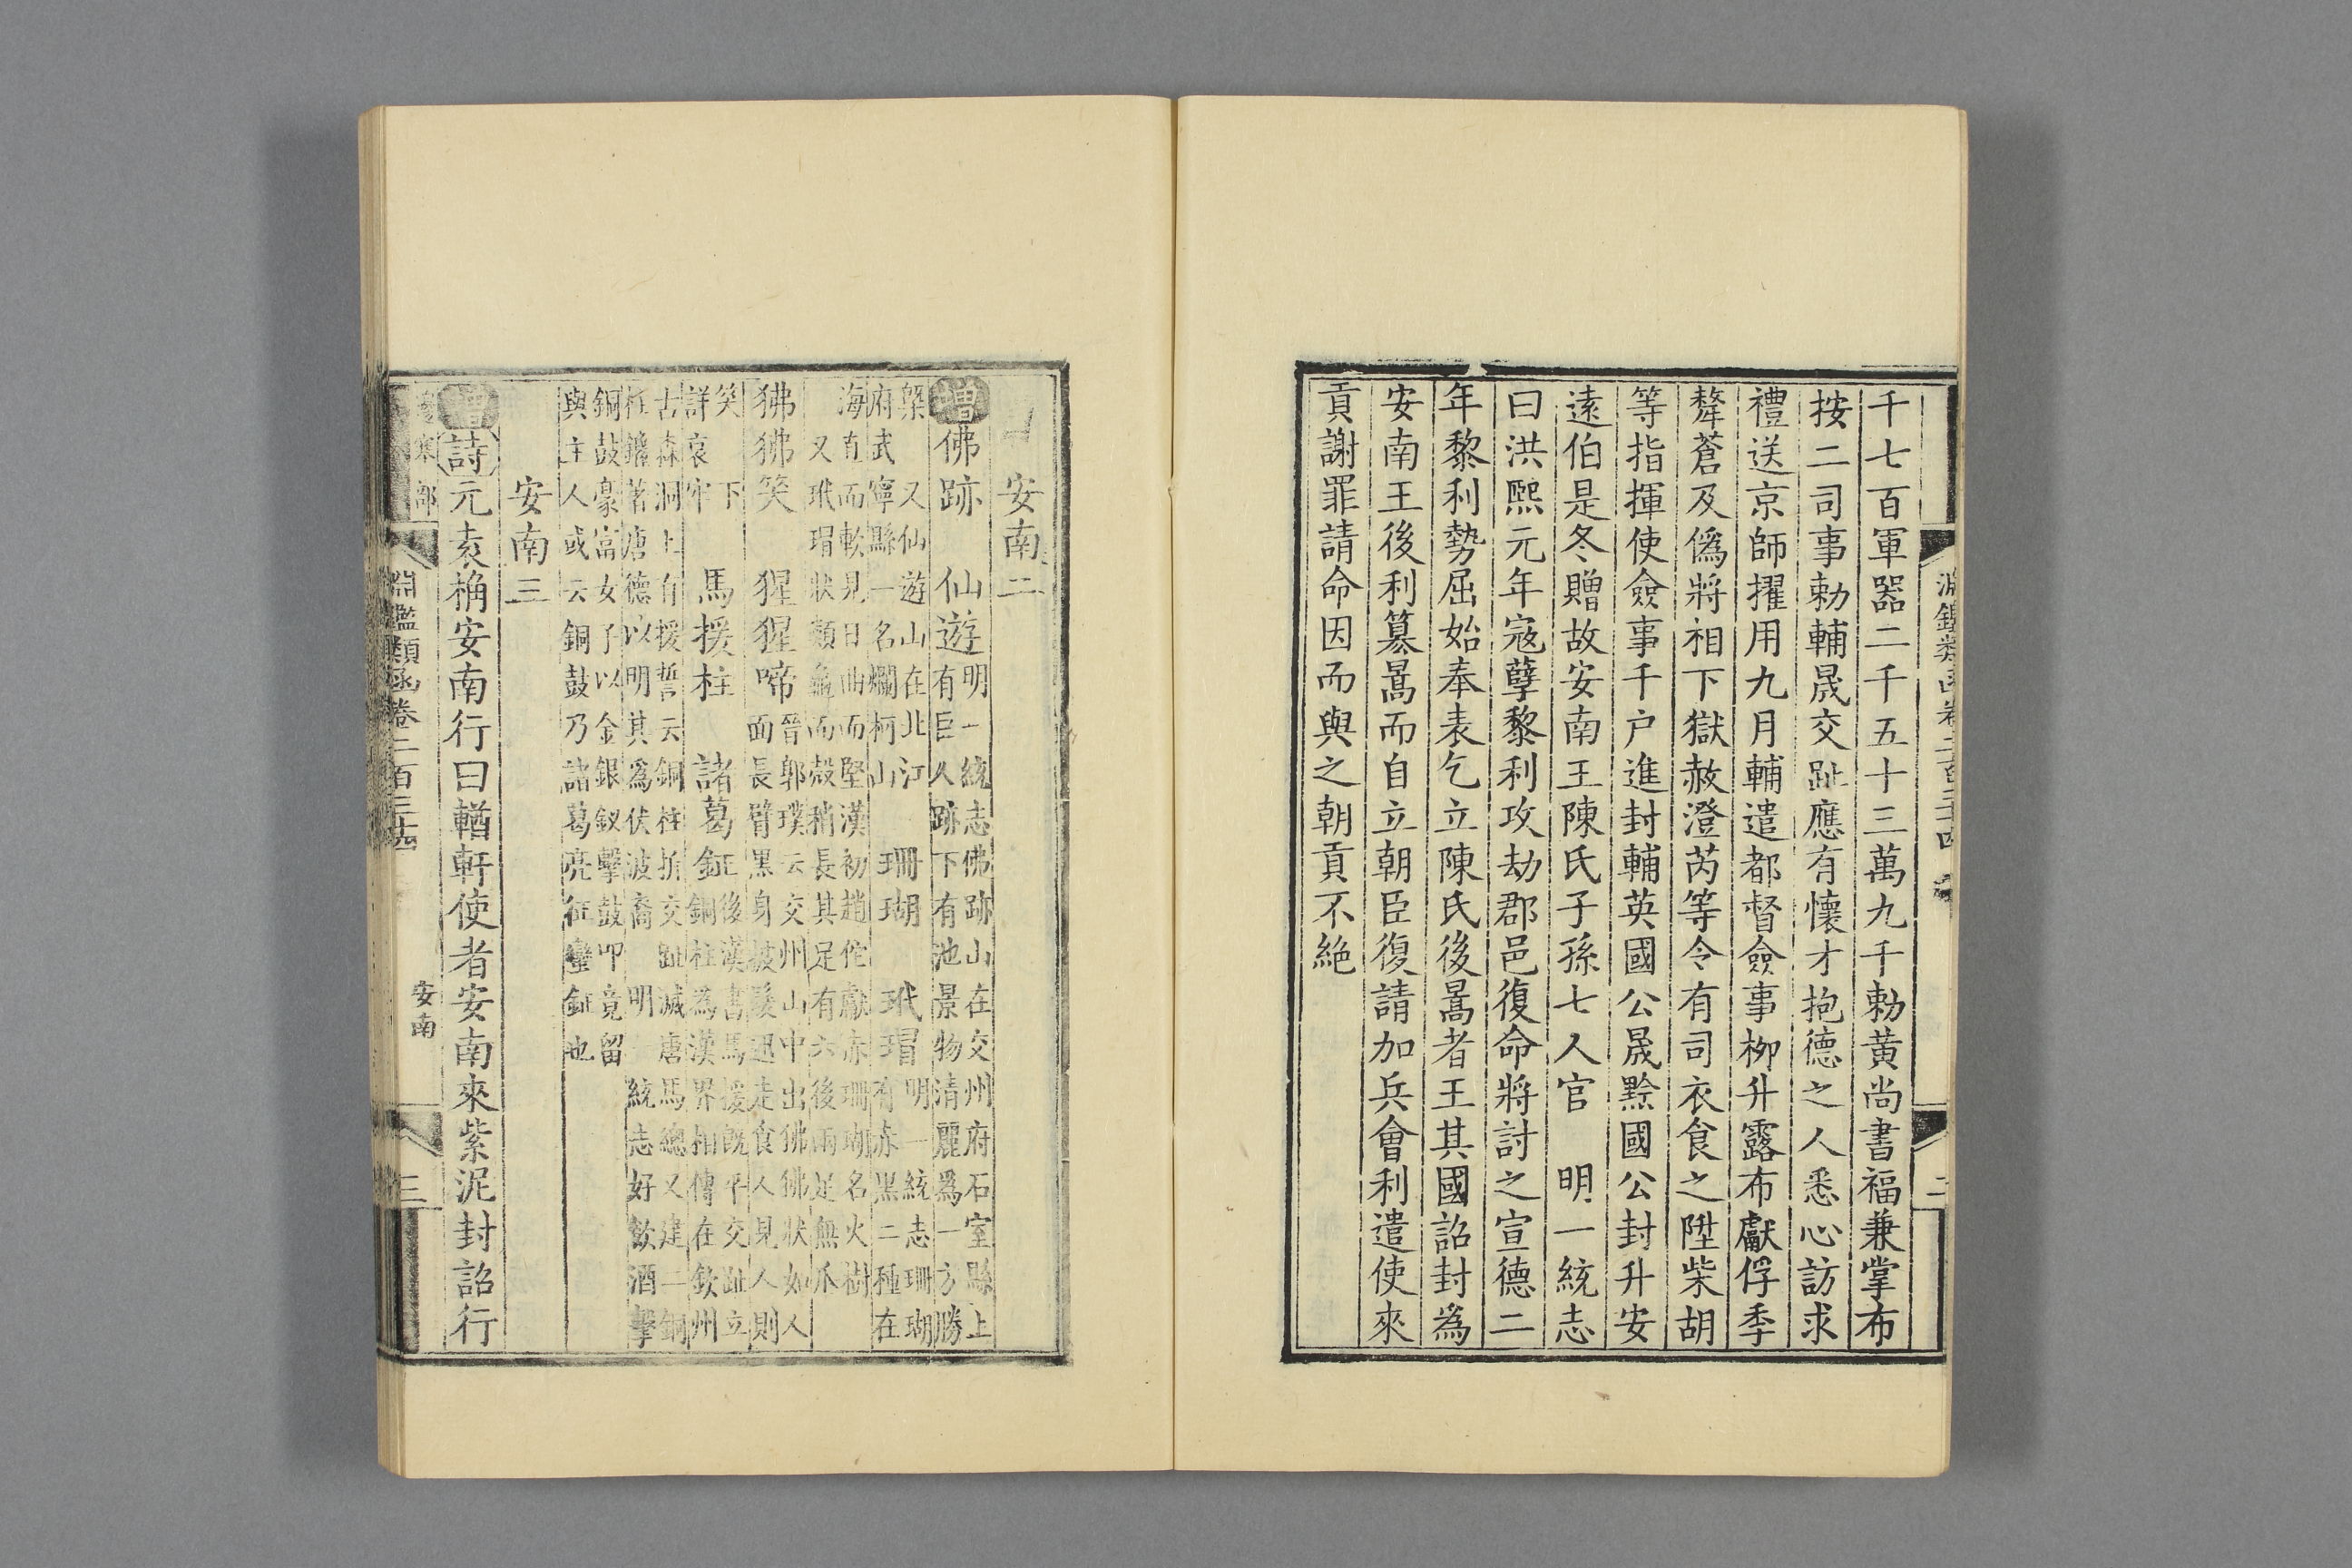 千七百軍器二千五十三萬九千勅黃尚書福兼掌布
按二司事勅輔晟交趾應有懷才抱德之人悉心訪求
禮送京師擢用九月輔遣都督僉事柳升露布獻俘季
犛蒼及僞將相下獄赦澄芮等令有司衣食之陞柴胡
等指揮使僉事千户進封輔英國公晟黔國公封升安
遠伯是冬贈故安南王陳氏子孫七人官　明一統志
曰洪熙元年寇孽黎利攻劫郡邑復命將討之宣德二
年黎利勢屈始奉表乞立陳氏後暠者王其國詔封為
安南王後利篡暠而自立朝臣復請加兵會利遣使來
貢謝罪請命因而與之朝貢不絕
安南二
增佛跡　仙遊
明一統志佛跡山在交州府石室縣上
有巨人跡下有池景物清麗爲一方勝
槩　又仙遊山在北江
府武寧縣一名爛柯山
珊瑚　玳瑁
明一統志珊瑚
有赤黑二種在
海直而軟見日曲而堅漢初趙佗獻赤珊瑚名火樹
又玳瑁狀類龜而殻稍長其足有六後兩足無爪
狒狒笑　猩猩啼
晉郭璞云交州山中出狒狒狀如人
面長臂黑身披髮迅走食人見人則
笑　下
詳哀牢
馬援柱　諸葛鉦
後漢書馬援既平交趾立
銅柱為漢界相傳在欽州
古森洞上有援誓云銅柱折交趾滅唐馬總又建二銅
柱鑱著唐德以明其爲伏波裔　明一統志好飲酒擊
銅鼓豪富女子以金銀釵擊鼓叩竟留
與主人或云銅鼓乃諸葛亮征蠻鉦也
安南三
增詩元袁桷安南行曰輶軒使者安南來紫泥封詔行
部
淵鑑類函卷二百三十四
安南
三